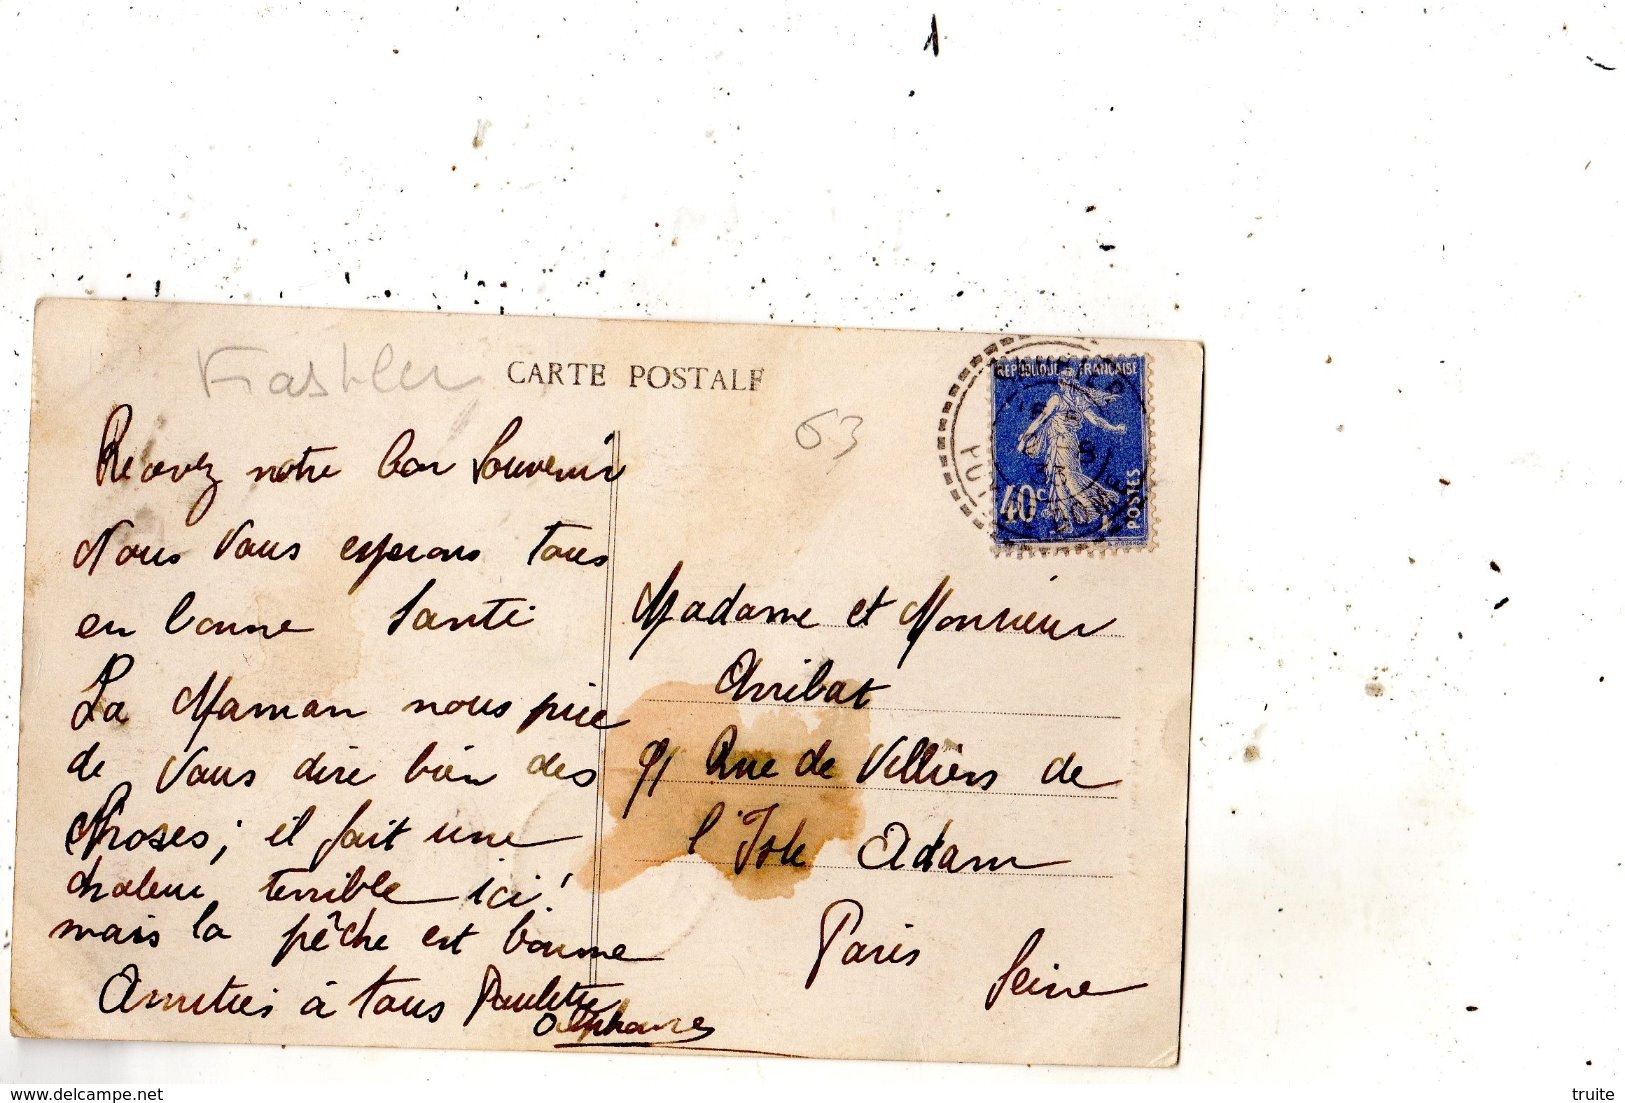 CARTE POSTALE
63
Recevez notre bon Souvenir
Nous Vous esperons tous
en bonne Santé
La Maman nous prie
de Vous dire bien des
Choses; il fait une
chaleur terrible ici!
mais la pêche est bonne
Amitiés à tous Paulette
Alphonse
REPUBLIQUE FRANÇAISE
40c
POSTES
PUY DE DOME
Madame et Monsieur
Arribat
91 Rue de Villiers de
l'Isle Adam
Paris
Seine
delcampe.net
truite